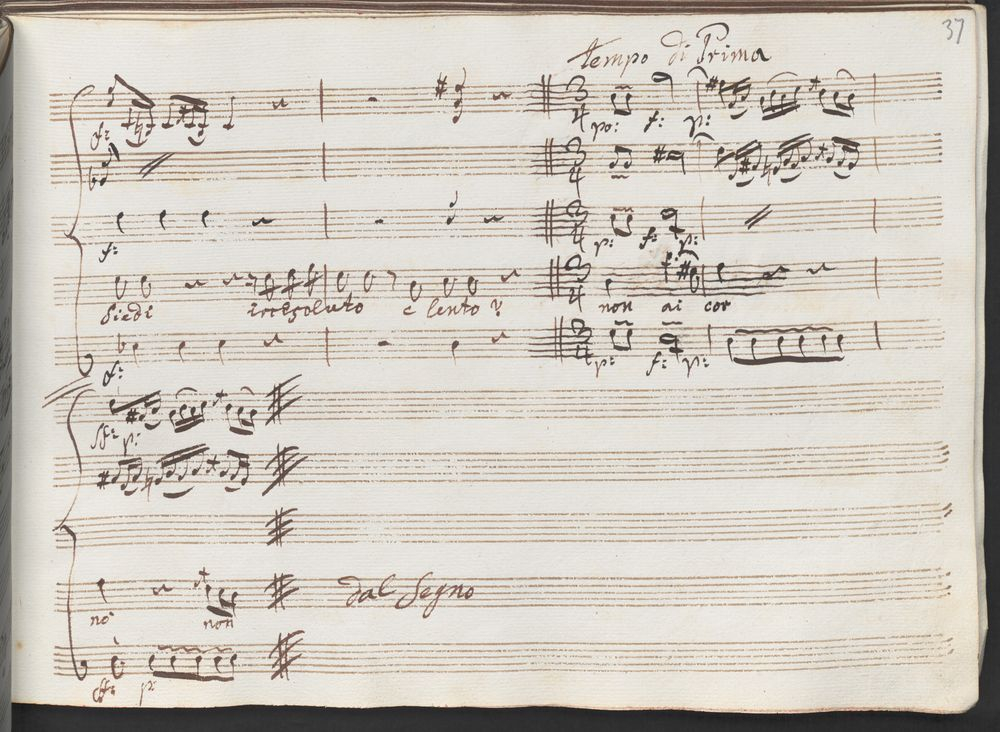 37
tempo di Prima
f: po: f: p:
f: p: f: p:
siedi irresoluto e lento? non ai cor
f: p: f: p:
ff: p:
dal Segno
no non
ff: p: